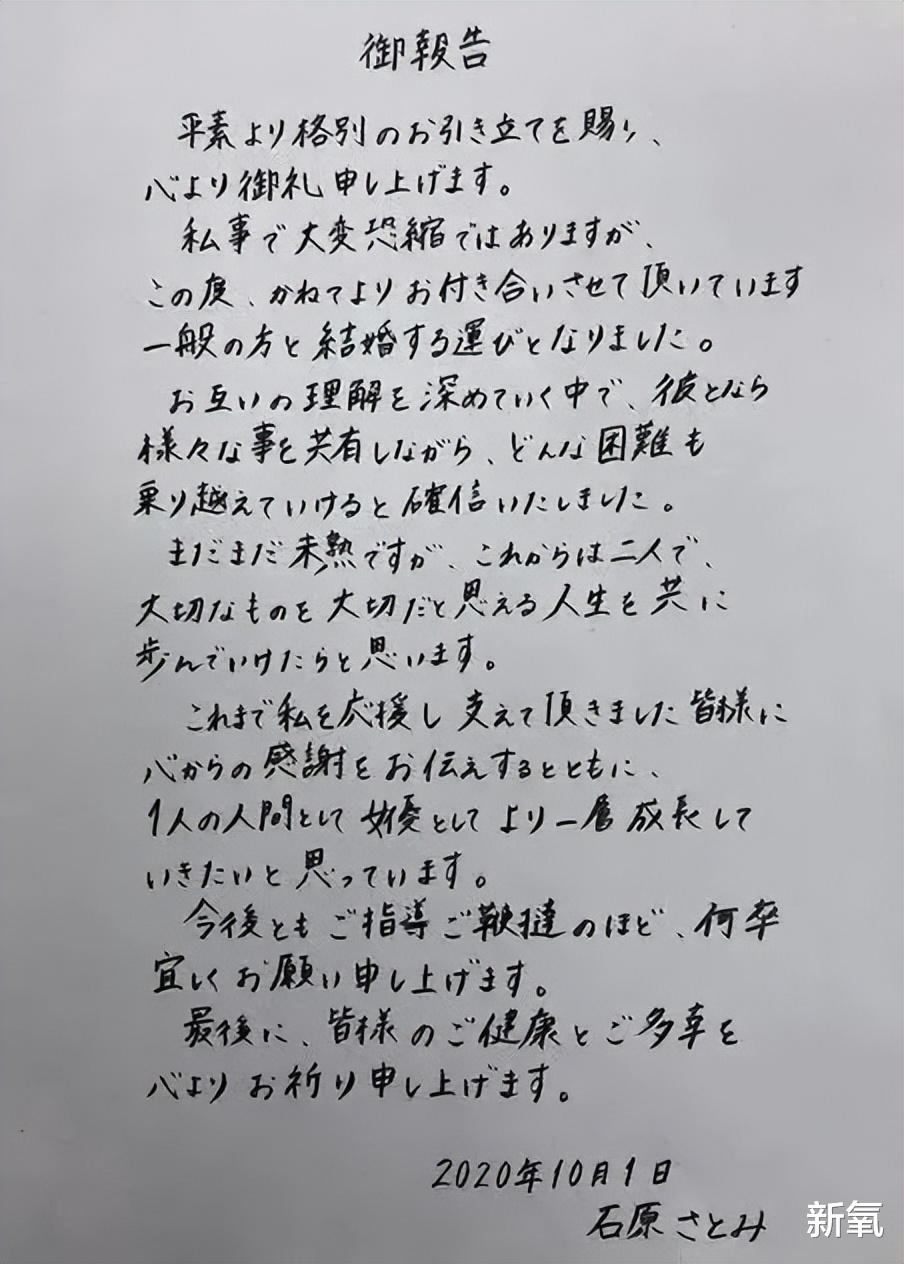 御報告
平素より格別のお引き立てを賜り、
心より御礼申し上げます。
私事で大変恐縮ではありますが、
この度、かねてよりお付き合いさせて頂いています
一般の方と結婚する運びとなりました。
お互いの理解を深めていく中で、彼となら
様々な事を共有しながら、どんな困難も
乗り越えていけると確信いたしました。
まだまだ未熟ですが、これからは二人で、
大切なものを大切だと思える人生を共に
歩んでいけたらと思います。
これまで私を応援し支えて頂きました皆様に
心からの感謝をお伝えするとともに、
1人の人間として女優としてより一層成長して
いきたいと思っています。
今後ともご指導ご鞭撻のほど、何卒
宜しくお願い申し上げます。
最後に、皆様のご健康とご多幸を
心よりお祈り申し上げます。
2020年10月1日
石原さとみ
新氧